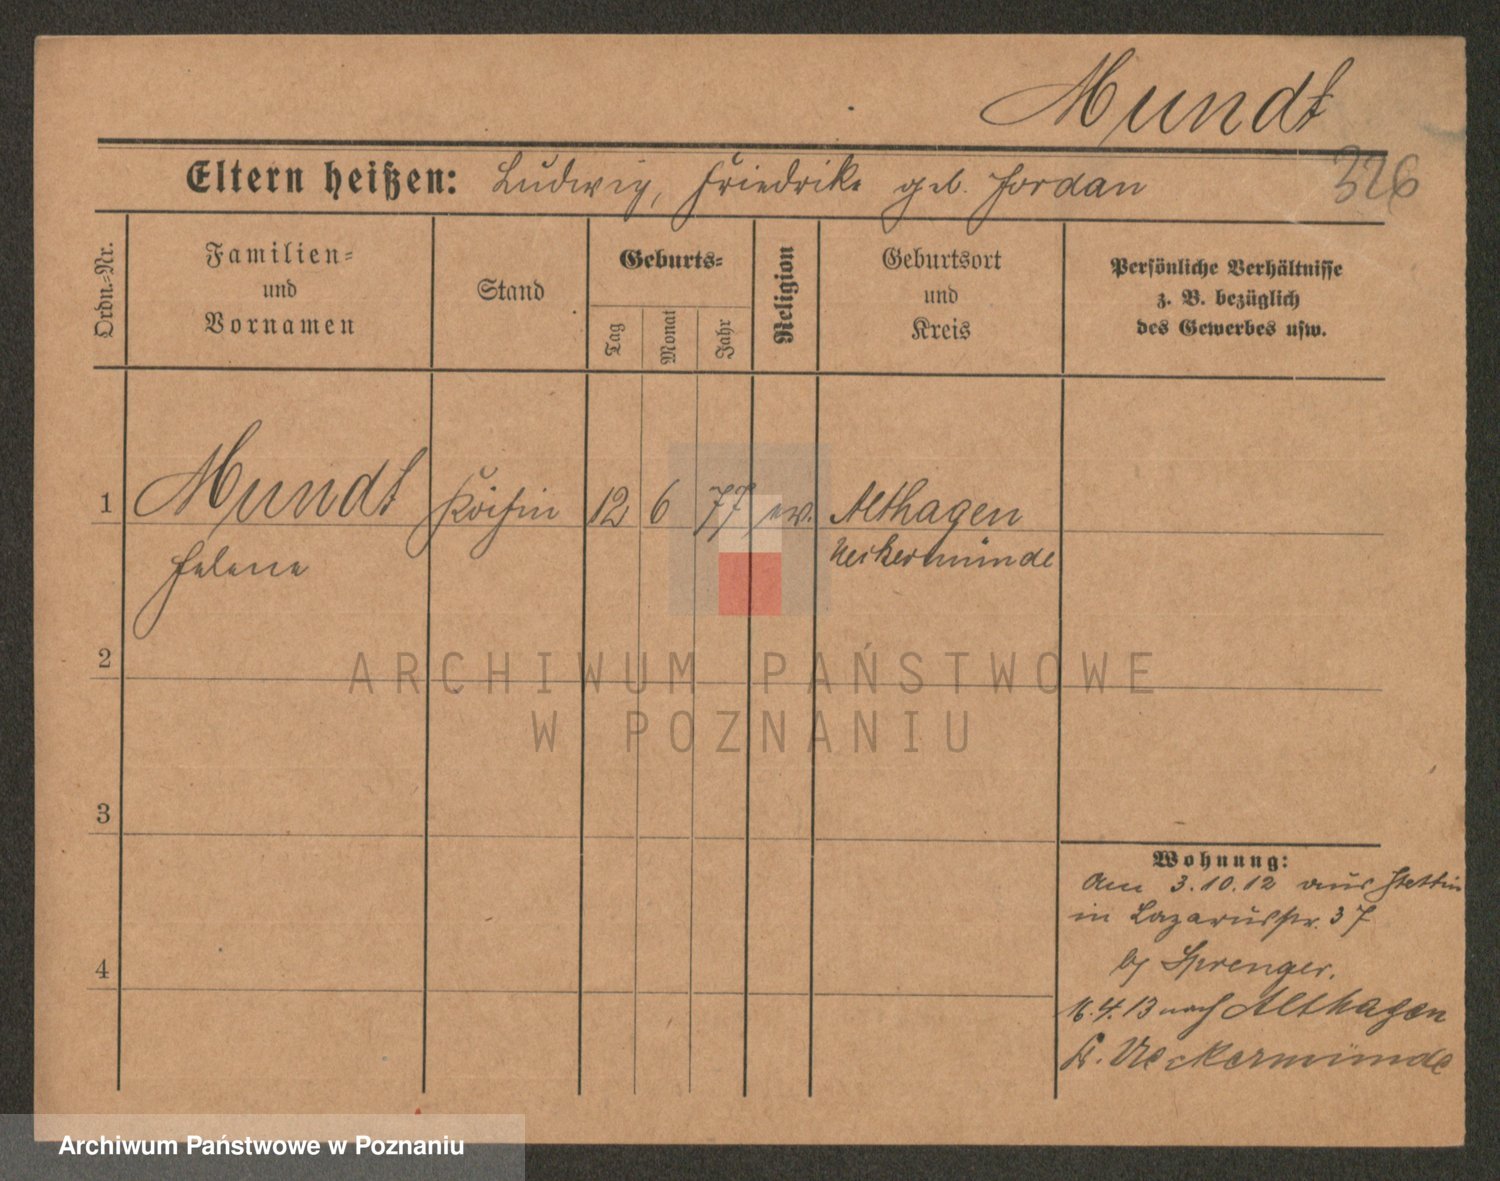 Mundt
326
Eltern heißen: Ludwig, Friedrike geb. Jordan
Ordn.-Nr.
Familien- und Vornamen
Stand
Geburts-
Tag
Monat
Jahr
Religion
Geburtsort und Kreis
Persönliche Verhältnisse
z. B. bezüglich
des Gewerbes usw.
1 Mundt Köchin 12 6 77 ev. Althagen
Helene Ueckermünde
2
3
4
Wohnung:
Am 3.10.12 aus Stettin
in Lazarusstr. 37
by Sprenger.
4.13 nach Althagen
Kr. Ueckermünde
ARCHIWUM PAŃSTWOWE
W POZNANIU
Archiwum Państwowe w Poznaniu